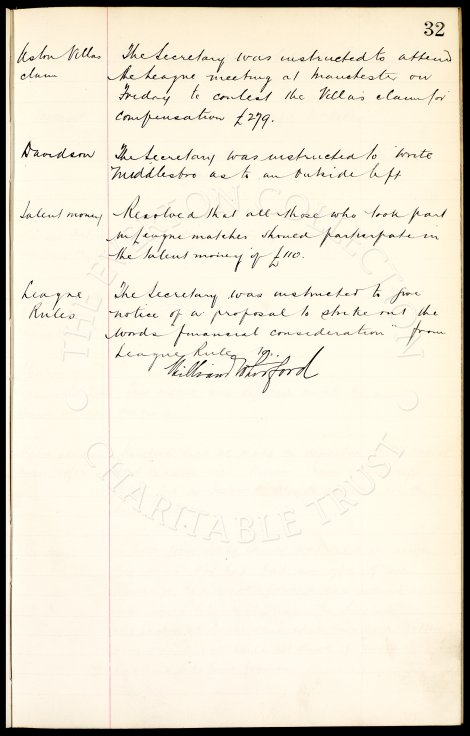 32
Aston Villas claim
The Secretary was instructed to attend
the League meeting at Manchester on
Friday to contest the Villa's claim for
compensation £279.
Davidson
The Secretary was instructed to write
Middlesbro as to an outside left
Talent money
Resolved that all those who took part
in League matches should participate in
the talent money of £110.
League Rules
The Secretary was instructed to give
notice of a proposal to strike out the
words financial consideration" from
League Rule 19..
William Whitford
THE EVERTON COLLECTION
CHARITABLE TRUST